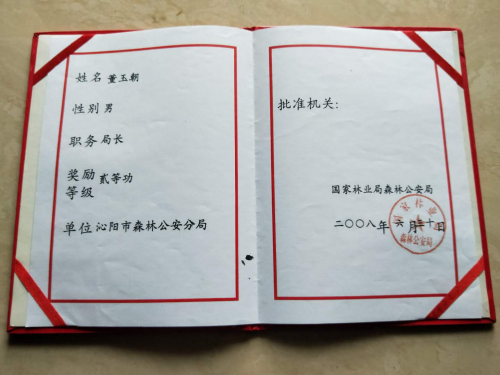 姓名 董玉朝
性别 男
职务 局长
奖励
等级 贰等功
单位 沁阳市森林公安分局
批准机关:
国家林业局森林公安局
二〇〇八年六月 十日
森林公安局